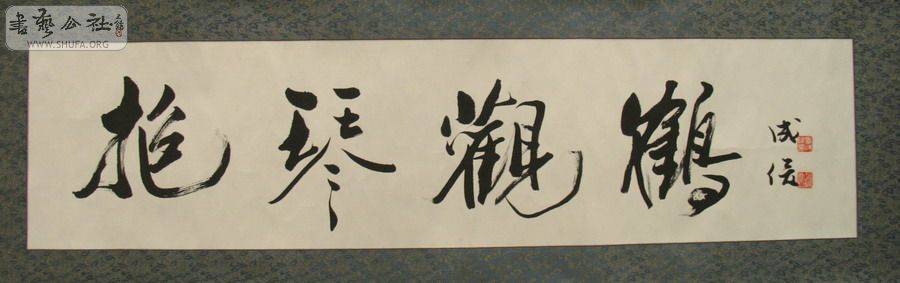 書藝公社
WWW.SHUFA.ORG
抱琴觀鶴
成俊